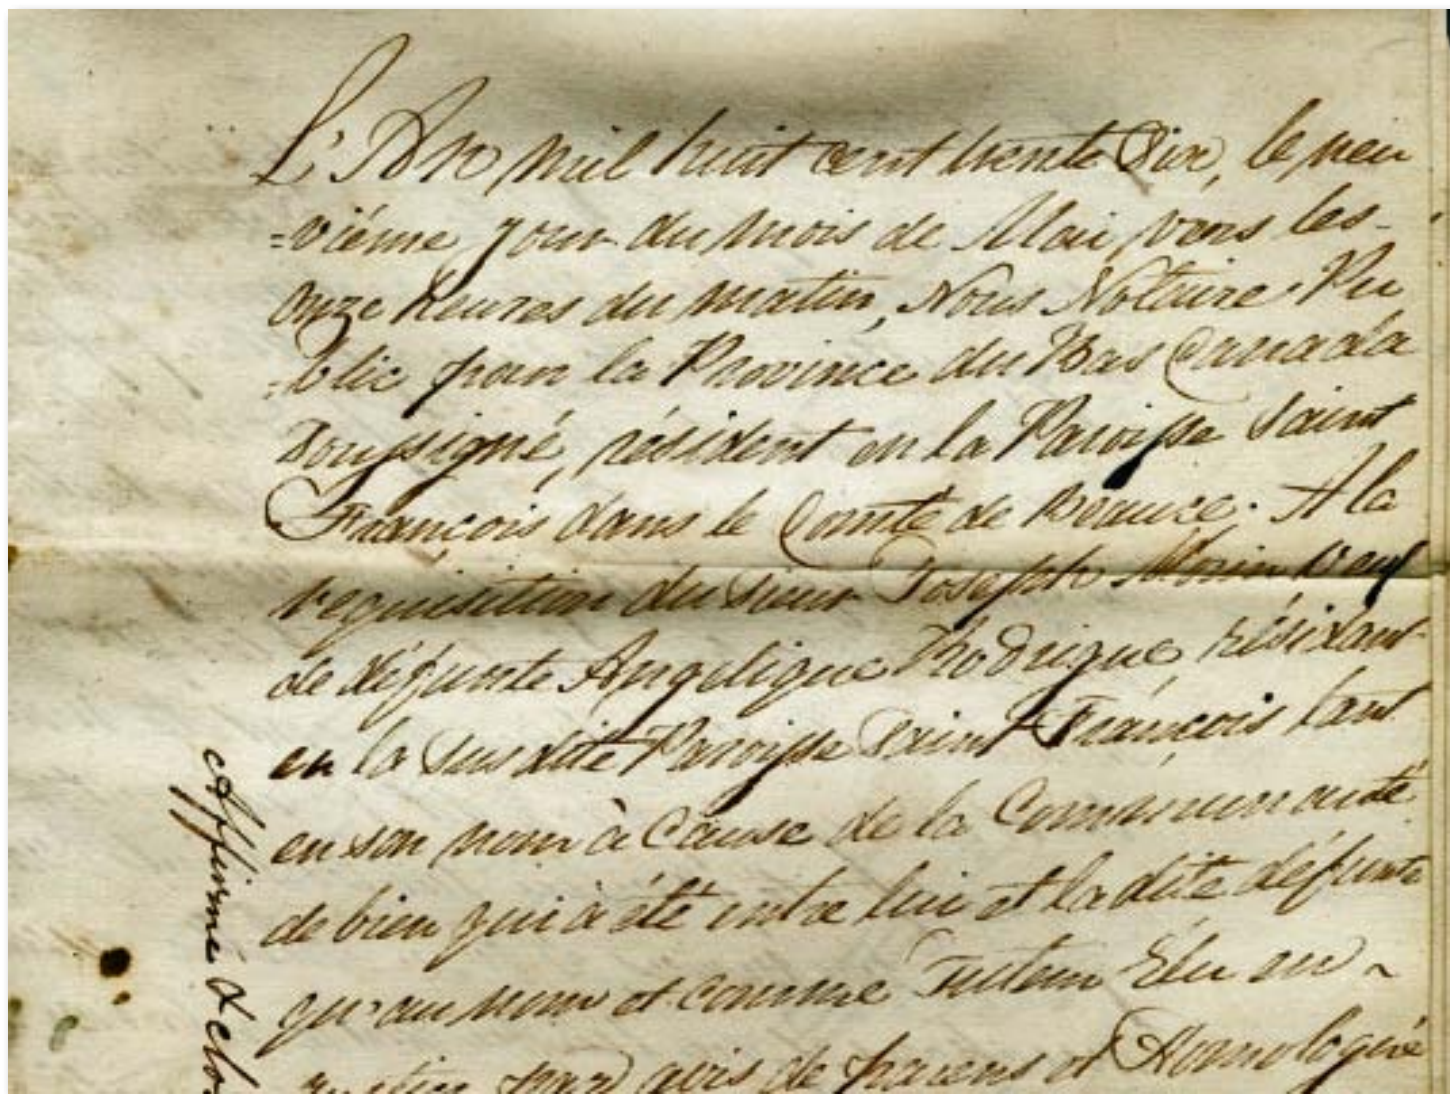 L'An mil huit cent trente Six, le neu
=viéme jour du mois de Mai vers les-
onze heures du matin, Nous Notaire Pu
=blic pour la Province du Bas Canada
Soussigné, résident en la Paroisse Saint
François dans le Comté de Beauce. A la
requisition du Sieur Joseph Morin veuf
de défunte Angelique Rhodrigue, résidant
en la Susdite Paroisse Saint François tant
en son nom à Cause de la Communauté
de bien qui à été entre lui et la dite défunte
qu'au nom et comme Tuteur Elu en ~
par avis de parens et Homologuée
Affirmé